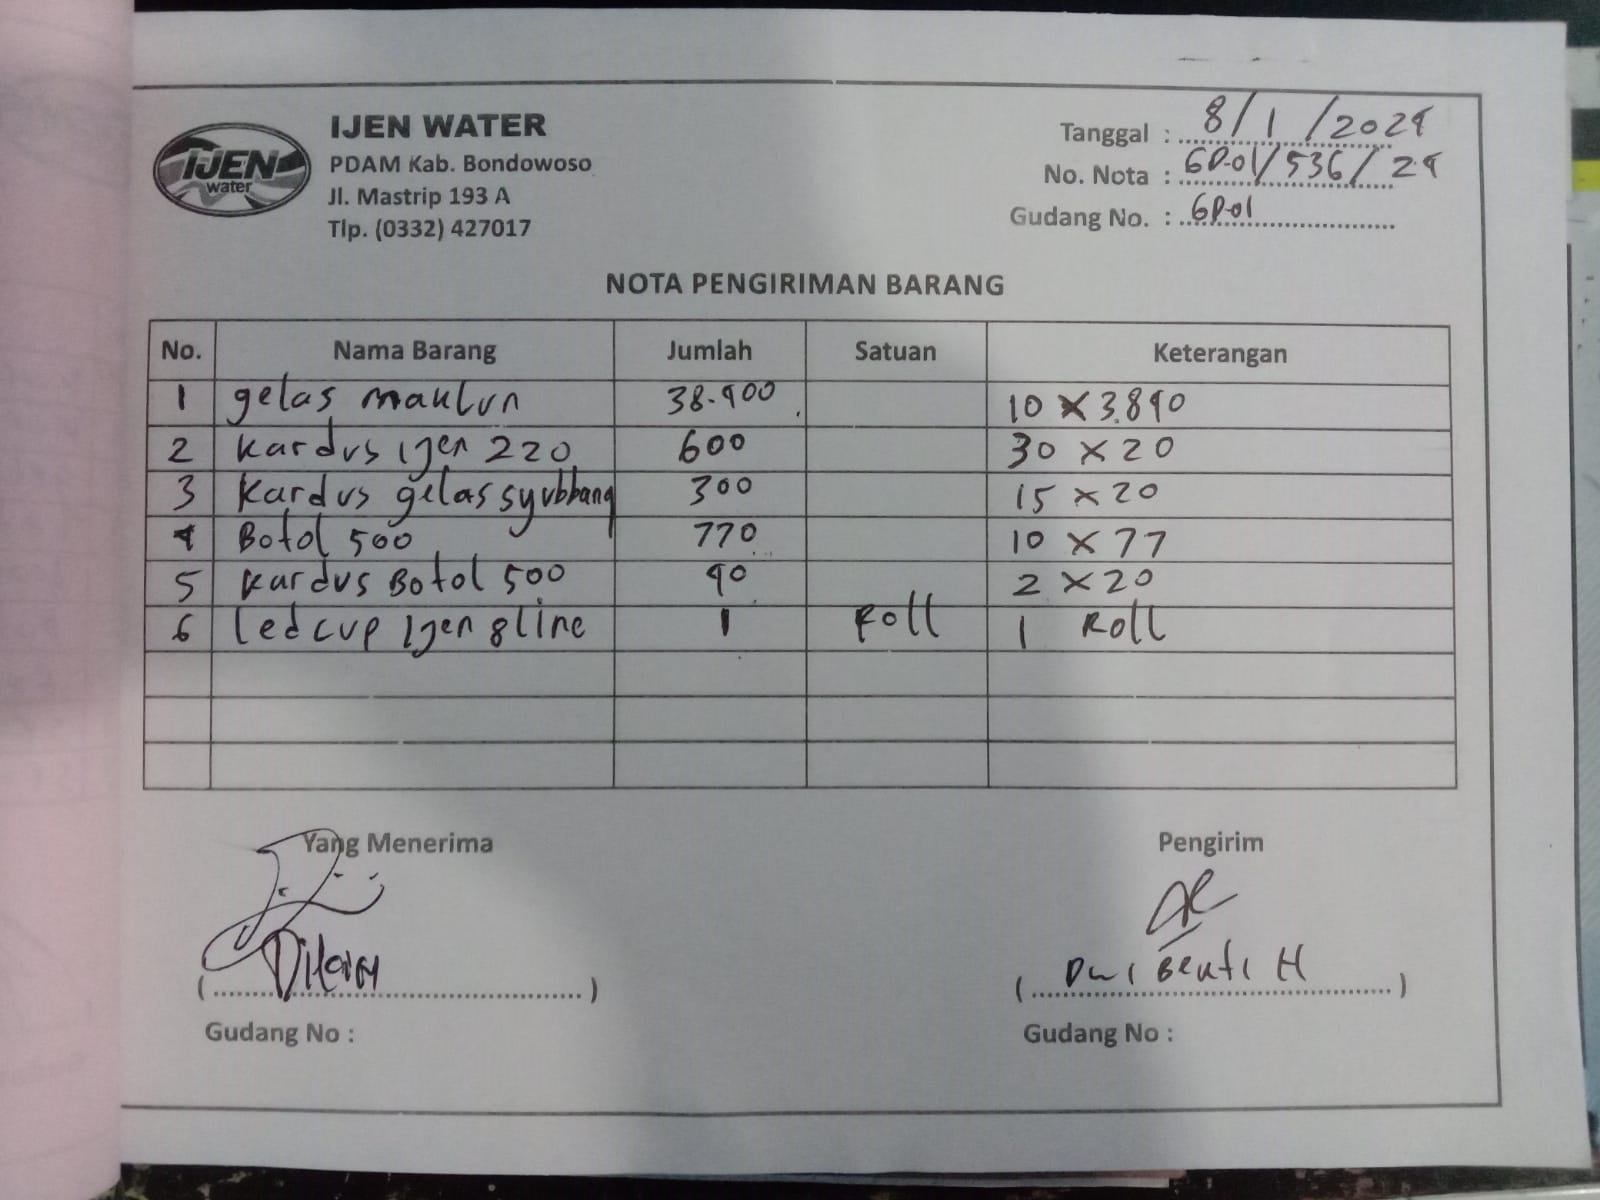 IJEN WATER
PDAM Kab. Bondowoso
Jl. Mastrip 193 A
Tlp. (0332) 427017
IJEN
water
Tanggal : 8/1/2024
No. Nota : GD-01/536/24
Gudang No. : GD-01
NOTA PENGIRIMAN BARANG
No. Nama Barang Jumlah Satuan Keterangan
1 gelas maklun 38.400 10 x 3.840
2 kardus ijen 220 600 30 x 20
3 kardus gelas syubbang 300 15 x 20
4 Botol 500 770 10 x 77
5 kardus Botol 500 40 2 x 20
6 Led cup Ijen 8 line 1 Roll 1 Roll
Yang Menerima
Pengirim
( )
( Dwi Bekti H )
Gudang No :
Gudang No :